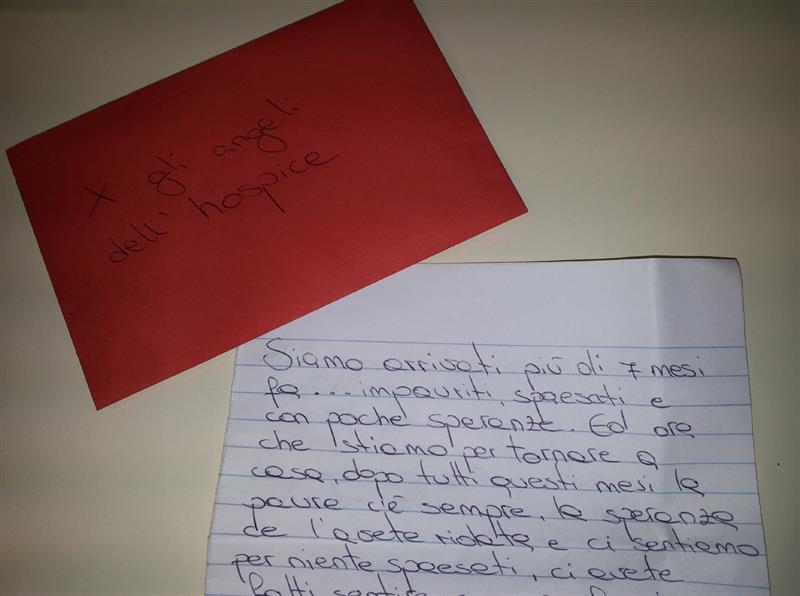 X gli angeli
dell'hospice
Siamo arrivati più di 7 mesi
fa... impauriti, spaesati e
con poche speranze. Ed ora
che stiamo per tornare a
casa, dopo tutti questi mesi la
paura c'è sempre, la speranza
ce l'avete ridata e ci sentiamo
per niente spaesati, ci avete
fatti sentire